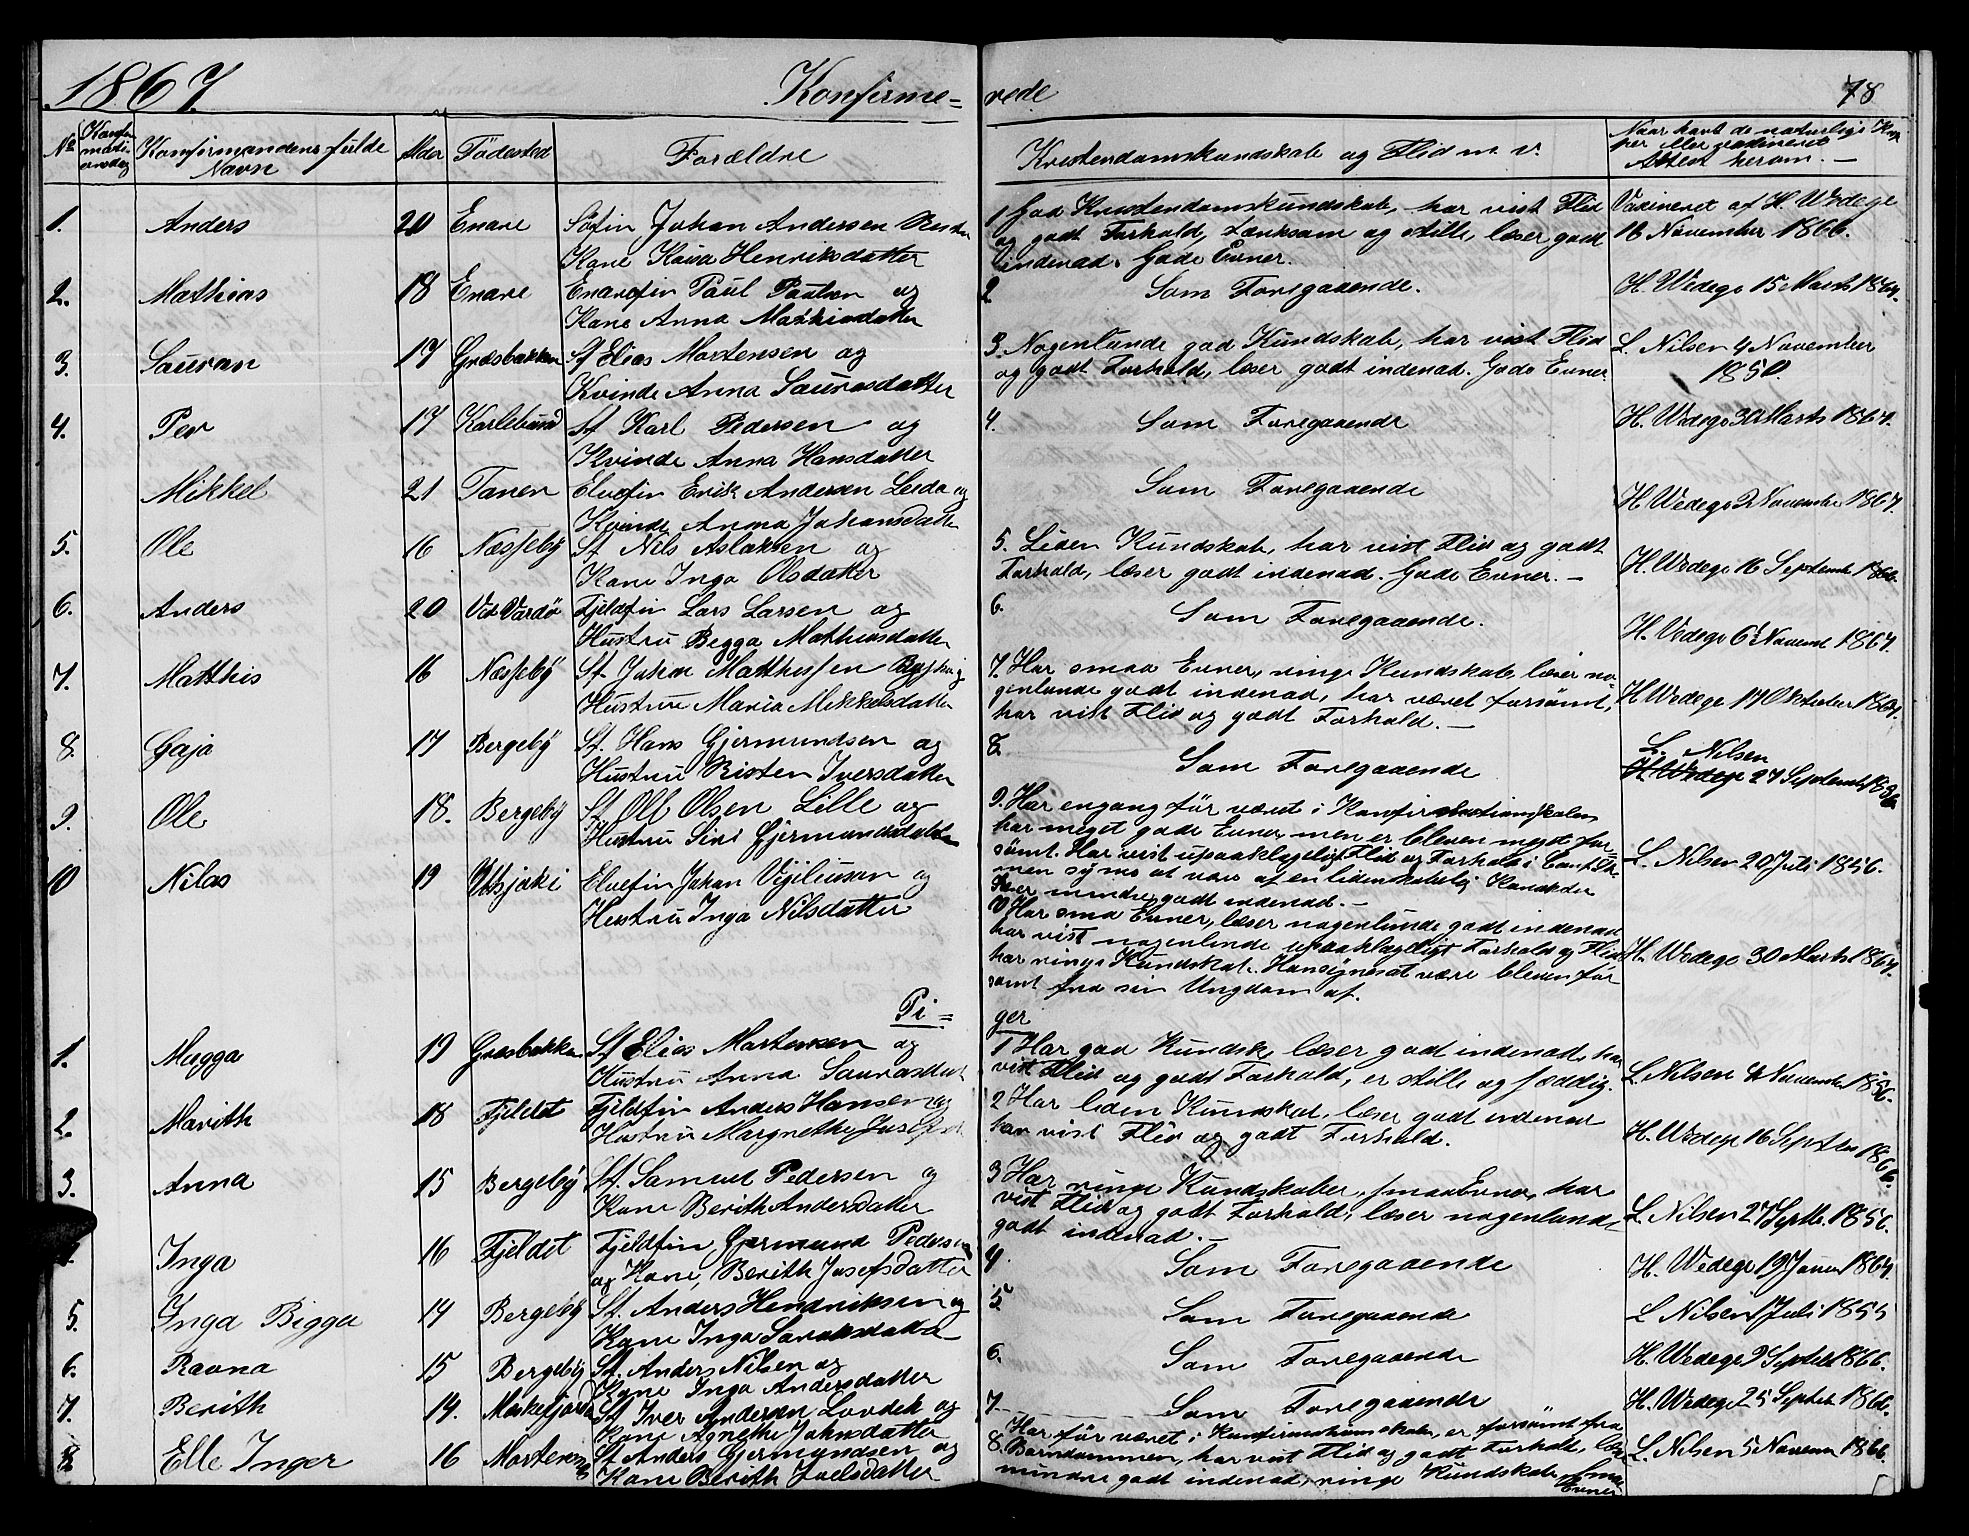 1867.
Konfirme=
No
Konfirmandens fulde Navn
Alder
Födested
Forældre
1. Anders 20 Enare Söfin Johan Andersen
Kone Kaisa Henriksdatter
2. Mathias 18 Enare Enarefin Paul Paulsen og
Kone Anna Mathisdatter
3. Sauran 17 Græsbakken Sf Elias Mortensen og
Kvinde Anna Saurasdatter
4. Per 17 Karlebund Sf. Karl Pedersen og
Kvinde Anna Hansdatter
Mikkel 21 Tanen Elvefin Erik Andersen og
Kvinde Anna Johansdatter
5. Ole 16 Næsseby Sf. Nils Aslaksen og
Kone Inga Olsdatter
6. Anders 20 Vardö Fjeldfin Lars Larsen og
Hustru Begga Mathisdatter
7. Matthis 16 Næsseby Sf. Johan Mathissen
Hustru Maria Mikkelsdatter
8. Gaja 17 Bergeby Sf. Hans Gjermundsen og
Hustru Risten Iversdatter
9. Ole 18. Bergeby Sf. Ole Olsen Lille og
Hustru Siri Gjermundsdatter
10 Nilas 19 Utsjoki Elvefin Johan og
Hustru Inga Nilsdatter
Pi=
1. Mugga 19 Græsbakken Sf Elias Mortensen og
Hustru Anna Saurasdat
2. Marith 18 Fjeldet Fjeldfin Anders Hansen og
Hustru Margrethe
3. Anna 15 Bergeby Sf. Samuel Pedersen og
Kone Berith Andersdatter
Inga 16 Fjeldet Fjeldfin Gjermund Pedersen
og Kone, Berith Josefsdatter
5. Inga Bigga 14 Bergeby Sf. Anders Hendriksen og
Kone Inga
6. Ravna 15 Bergeby Sf. Anders Nilsen og
Kone Inga Andersdatter
7. Berith 14. Sf. Iver Andersen og
Kone Agnethe Johnsdatter
8 Elle Inger 16 Sf Anders Gjermundsen og
Kone Berith Joelsdatter
rede
78
Kristendomskundskab og Flid m. v.
Naar havt de naturlige
eller vaccineret
Attest herom. —
1 God Kristendomskundskab, har vist Flid
og godt Forhold, Tænksom og stille, læser godt
indenad. Gode Evner.
Vaxineret af H. Wedege
16 November 1866.
2 Som Foregaaende.
H. Wedege 15 Marts 1867.
3. Nogenlunde god Kundskab, har vist Flid
og godt Forhold, læser godt indenad. Gode Evner.
L. Nilsen 4 November
1850.
4. Som Foregaaende
H. Wedege 30 Marts 1867.
Som Foregaaende
H. Wedege 2 November 1867.
5. Liden Kundskab, har vist Flid og godt
Forhold, læser godt indenad. Gode Evner. —
H. Wedege 16 Septemb 1866.
6. Som Foregaaende.
H. Wedege 6 Novemb 1867.
7. Har smaa Evner, ringe Kundskab, læser no-
genlunde godt indenad, har været forsömt,
har vist Flid og godt Forhold. —
H Wedege 17 Oktober 1867.
8. Som Foregaaende
L. Nilsen
H. Wedege 27 Septemb 1856.
9. Har engang för været i Konfirmationsskolen
har meget gode Evner, men er bleven meget for-
sömt. Har vist upaaklageligt Flid og Forhold i
men synes at være af en lidenskabelig Karakter
læser mindre godt indenad. —
L. Nilsen 20 Juli 1856.
10 Har smaa Evner, læser nogenlunde godt indenad
har vist nogenlunde upaaklageligt Forhold og Flid
har ringe Kundskab. Han synes at være bleven for
sömt fra sin Ungdom af.
H. Wedege 30 Marts 1867.
ger
1 Har god Kundsk, læser godt indenad, har
vist Flid og godt Forhold, er stille og fredelig.
L Nilsen 4 Novemb 1856.
2 Har liden Kundskab, læser godt indenad
har vist Flid og godt Forhold.
H. Wedege 16 Septem 1866.
3 Har ringe Kundskaber, smaa Evner, har
vist Flid og godt Forhold, læser nogenlunde
godt indenad. —
L. Nilsen 27 Septb. 1856.
4 Som Foregaaende
H. Wedege 19 1867.
5 Som Foregaaende
L Nilsen 1 Juli 1855
6. Som Foregaaende
H. Wedege 9 1866.
7. Som Foregaaende
H. Wedege 25 Septeb 1866.
8. Har för været i Konfirmationsskolen, er forsömt fra
Barndommen, har vist Flid og godt Forhold, læser
mindre godt indenad, ringe Kundskab, smaa
Evner
L. Nilsen 5 Novem 1866.